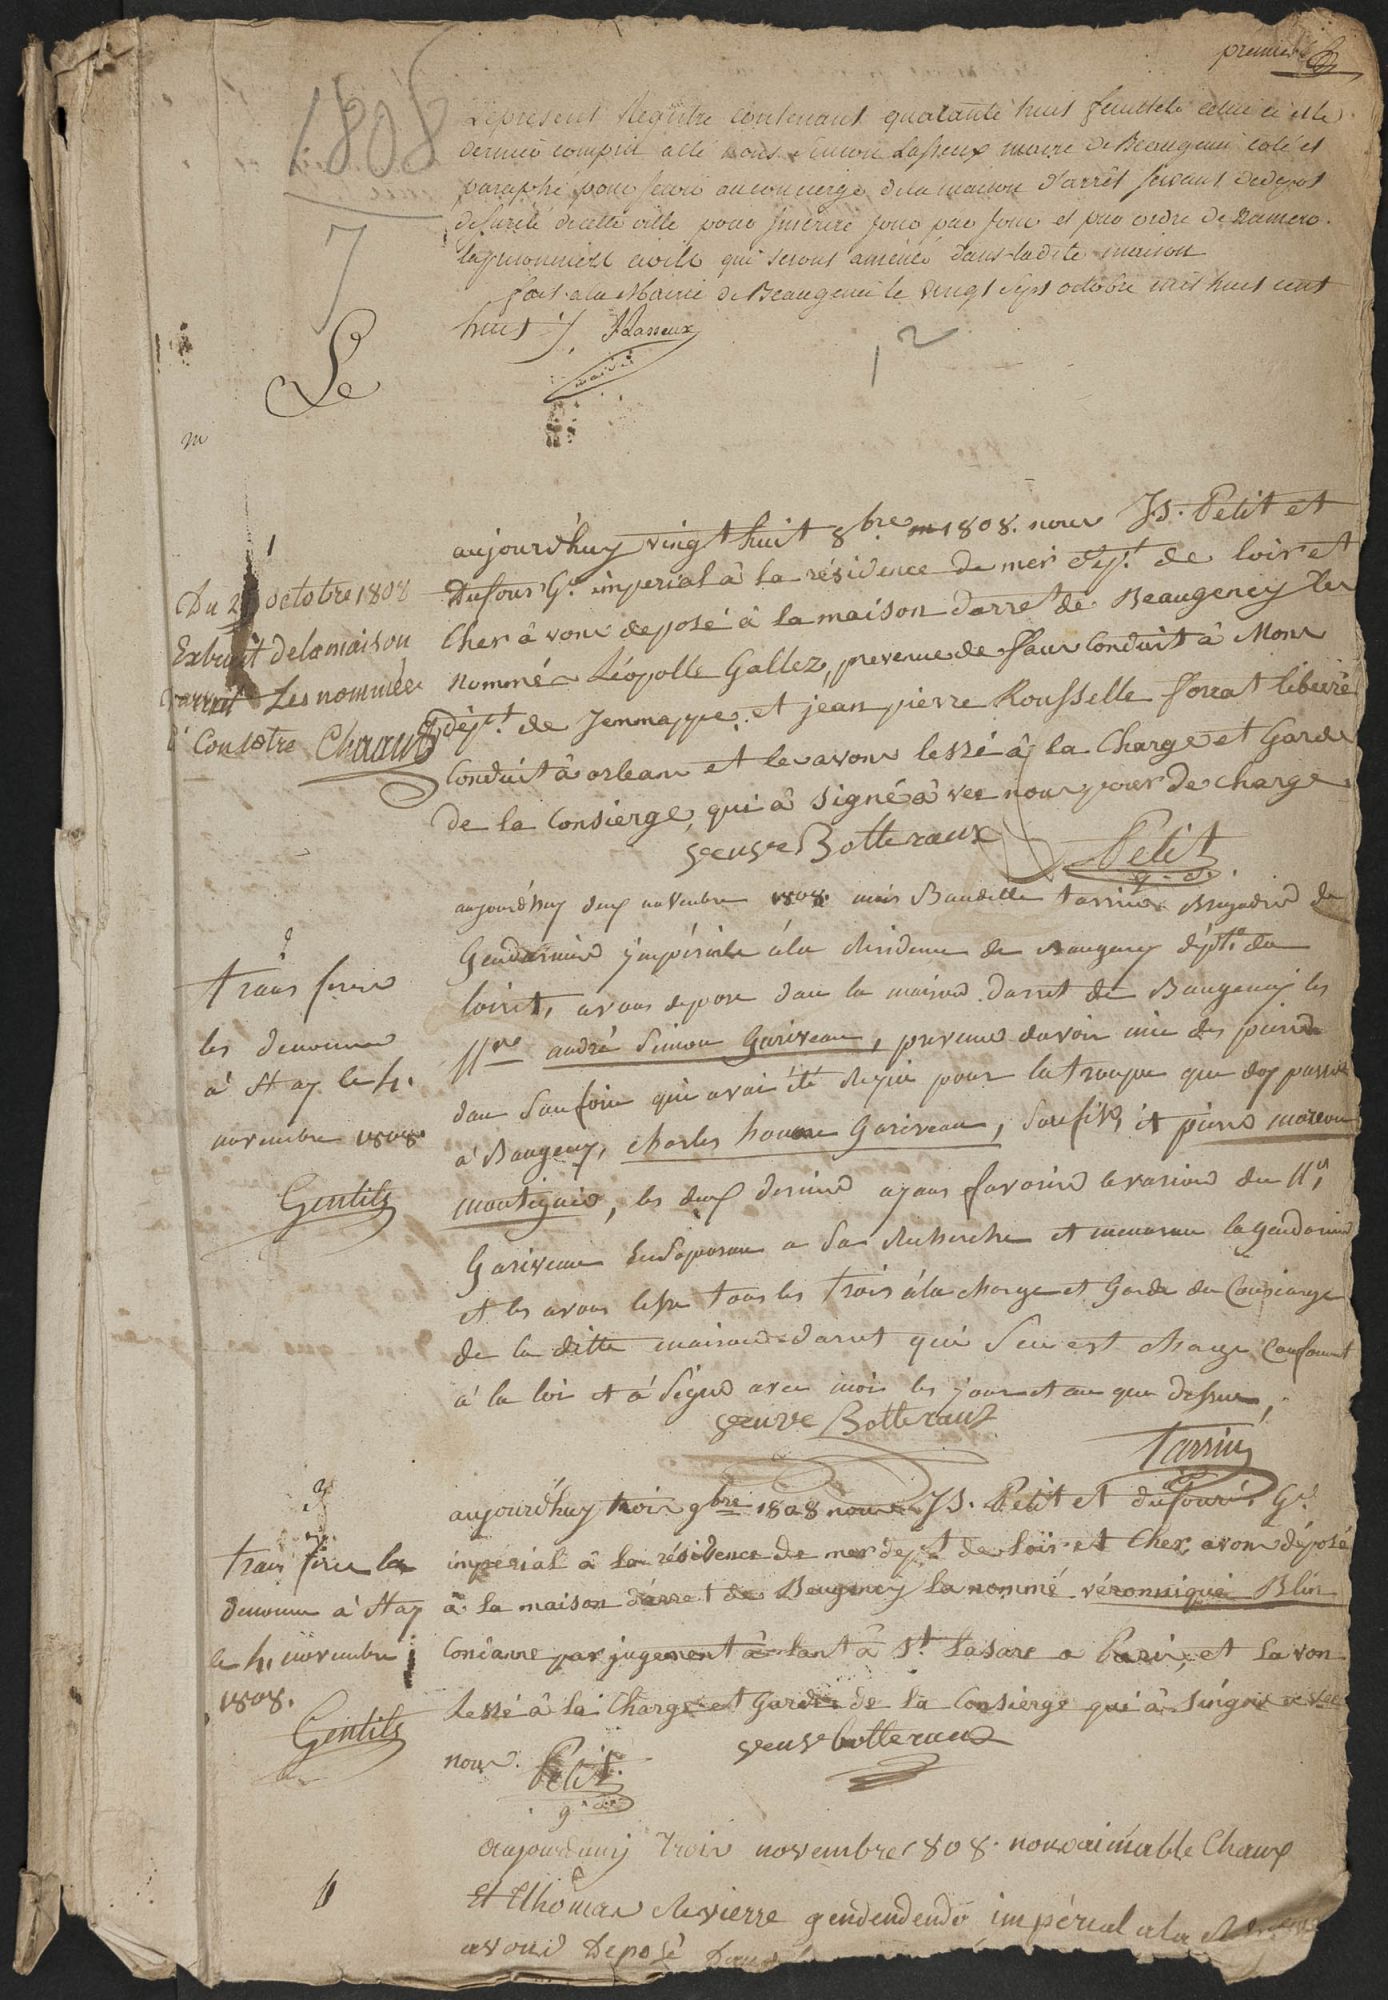 premier
1808
7
Le present Registre contenant quarante huit feuillets celui ci et le
dernier compris a été nous Lasseux maire de Beaugenci coté et
paraphé pour servir au concierge de la maison d'arrêt servant de depot
de sureté de cette ville pour inscrire jour par jour et par ordre de Numero
les prisonniers civils qui seront aménés dans ladite maison
fait a la Mairie de Beaugenci le vingt sept octobre mil huit cent
huit Lasseux
maire
12
Le
m
1
Du 29 octobre 1808
Extrait de la maison
darret Les nommés
ci Contre
aujourd'huy vingt huit 8bre 1808. nous JS. Petit et
Dufour Ge. imperial à la résidence de mer dept. de loir et
Cher à vons deposé à la maison darret de Beaugency les
nommés Léopolle Gallez, prevenue de faux Conduit à Mons
dépt. de Jemmappe. et jean pierre Rousselle forcat libéré
Conduit à orleans et les avons lessé à la Charge et Garde
de la Consierge, qui à signé à vec nous pour de charge
veuve Botteraux Petit
g. d.
2
trans ferer
les denommé
à Hay le 4.
novembre 1808.
Gentils
aujourd'huy deux novembre 1808. mois Baudille tarrin Brigadier de
Gendarmerie jmpériale à la Residence de Baugency dépte. du
loiret, avons depose dans la maison darret de Baugency les
andré Simon Gariveau, prevenu davoir mis des pierres
dans Sanfoin qui avai été Requi pour la troupe que doy passer
à Baugency, charles honore Gariveau, Son fils, et pierre moreau
montignié, les deux dernier ayans favorisé levasion du
Gariveau En Soposan a Sa Recherche et menasan la gendarmerie
et les avons lesse tous les trois à la charge et Garde du Consierge
de la ditte maison darret qui Sen est charge Conforment
à la loi et à Signé avec mois les jour et an que dessus,
veuve Botteraux
tarrin
3
trans ferer la
denomme à Hay
le 4. novembre
1808.
Gentils
aujourd'huy trois 9bre 1808 nous JS. Petit et dufour, Ge.
impérial à la résidence de mer dept de loir et Cher avons déposé
à la maison d'arret de Beugency la nommé véronnique Blin
Condanne par jugement à lant à St. Lasare a Paris, et la von
lessé à la Charge et Garde de la Consierge qui à singné a vec
nous. Petit. veuve botteraux
g. d.
4
aujourdhuy trois novembre 1808. nous aimable Chaux
Et Thomas Revierre gendendende impérial a la
avons Deposé Dans